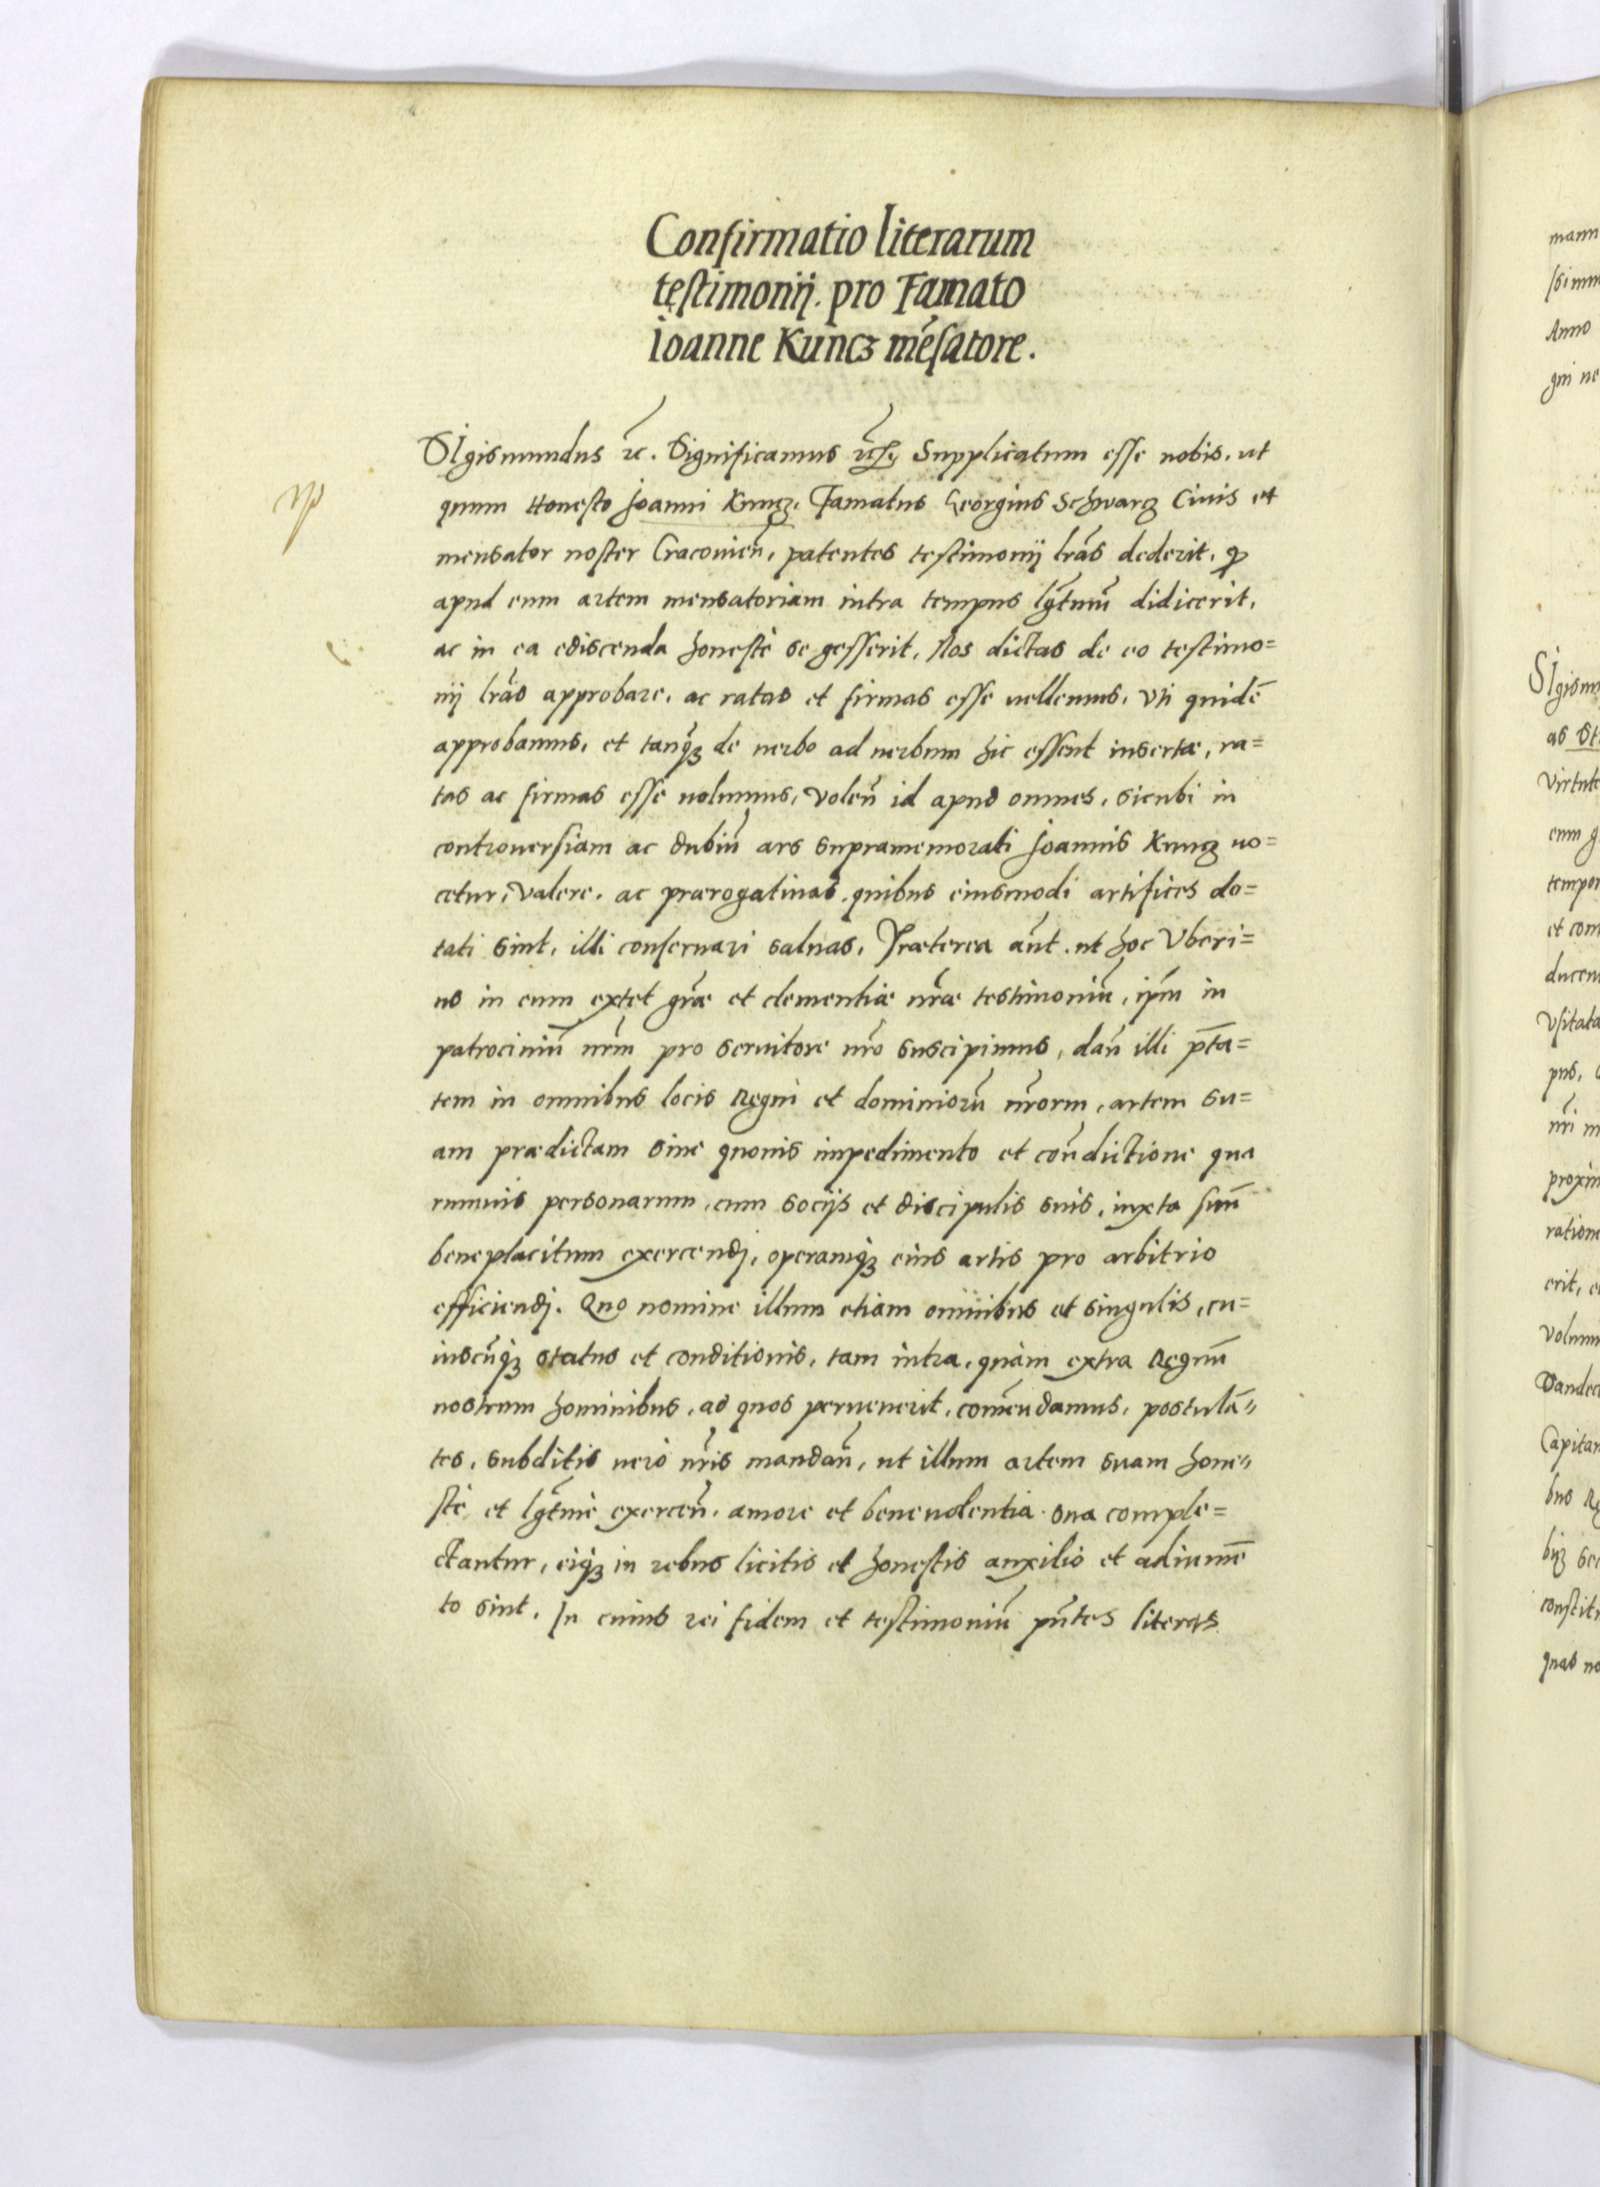 Confirmatio literarum
testimonij. pro Famato
Ioanne Kuncz mēsatore.
SIgismundus ꝛc. Significamus ꝛc. Supplicatum esse nobis, ut
quum Honesto Joanni Kuncz, Famatus Georgius Schwarcz Ciuis et
mensator noster Cracovieñ, patentes testimonij lrãs dederit, ꝙ
apud eum artem mensatoriam intra tempus lg̃tmũ didicerit,
ac in ea ediscenda honestè se gesserit, Nos dictas de eo testimo=
nij lrãs approbare, ac ratas et firmas esse uellemus, Vti quidẽ
approbamus, et tanq̃ȝ de uerbo ad uerbum hic essent insertæ, ra=
tas ac firmas esse uolumus, Voleñ id apud omnes, sicubi in
controuersiam ac dubiũ ars supramemorati Joannis Kuncz uo=
cetur, Valere, ac prærogatiuas, quibus eiusmodi artifices do=
tati sint, illi conseruari saluas, Præterea aũt, ut hoc Vberi=
us in eum extet grãe et clementiæ nrãe testimoniũ, ip̃m in
patrociniũ nrm̃ pro seruitore nrõ suscipimus, dañ illi p̃ta=
tem in omnibus locis Regni et dominiorũ nrõrm, artem su=
am prædictam sine quouis impedimento et coñdictione qua
rumuis personarum, cum socijs et discipulis suis, iuxta suũ
beneplacitum exercendj, operamq̃ȝ eius artis pro arbitrio
efficiendj. Quo nomine illum etiam omnibus et singulis, cu=
iuscũq̃ȝ status et conditionis, tam intra, quàm extra Regnũ
nostrum hominibus, ad quos peruenerit, com̃endamus, postulã=
tes, subditis uerò nrĩs mandañ, ut illum artem suam hone=
stè, et lg̃tmè exerceñ, amore et beneuolentia sua comple=
ctantur, eiq̃ȝ in rebus licitis et honestis auxilio et adiumẽ
to sint. In cuius rei fidem et testimoniũ pñtes literas
mann
Anno
SIgism
Virtute
eum
tempor
et com
ducen
Vsitata
pus,
nrĩ
proxim
ratione
erit,
Volum
Capitan
constit
quas no